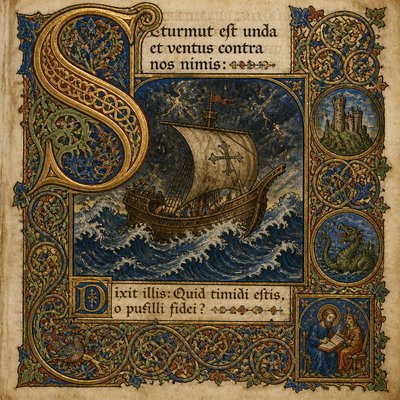 Seturmut eſt unda
et ventus contra
nos nimis:
Dixit illis: Quid timidi eſtis,
o puſilli fidei?